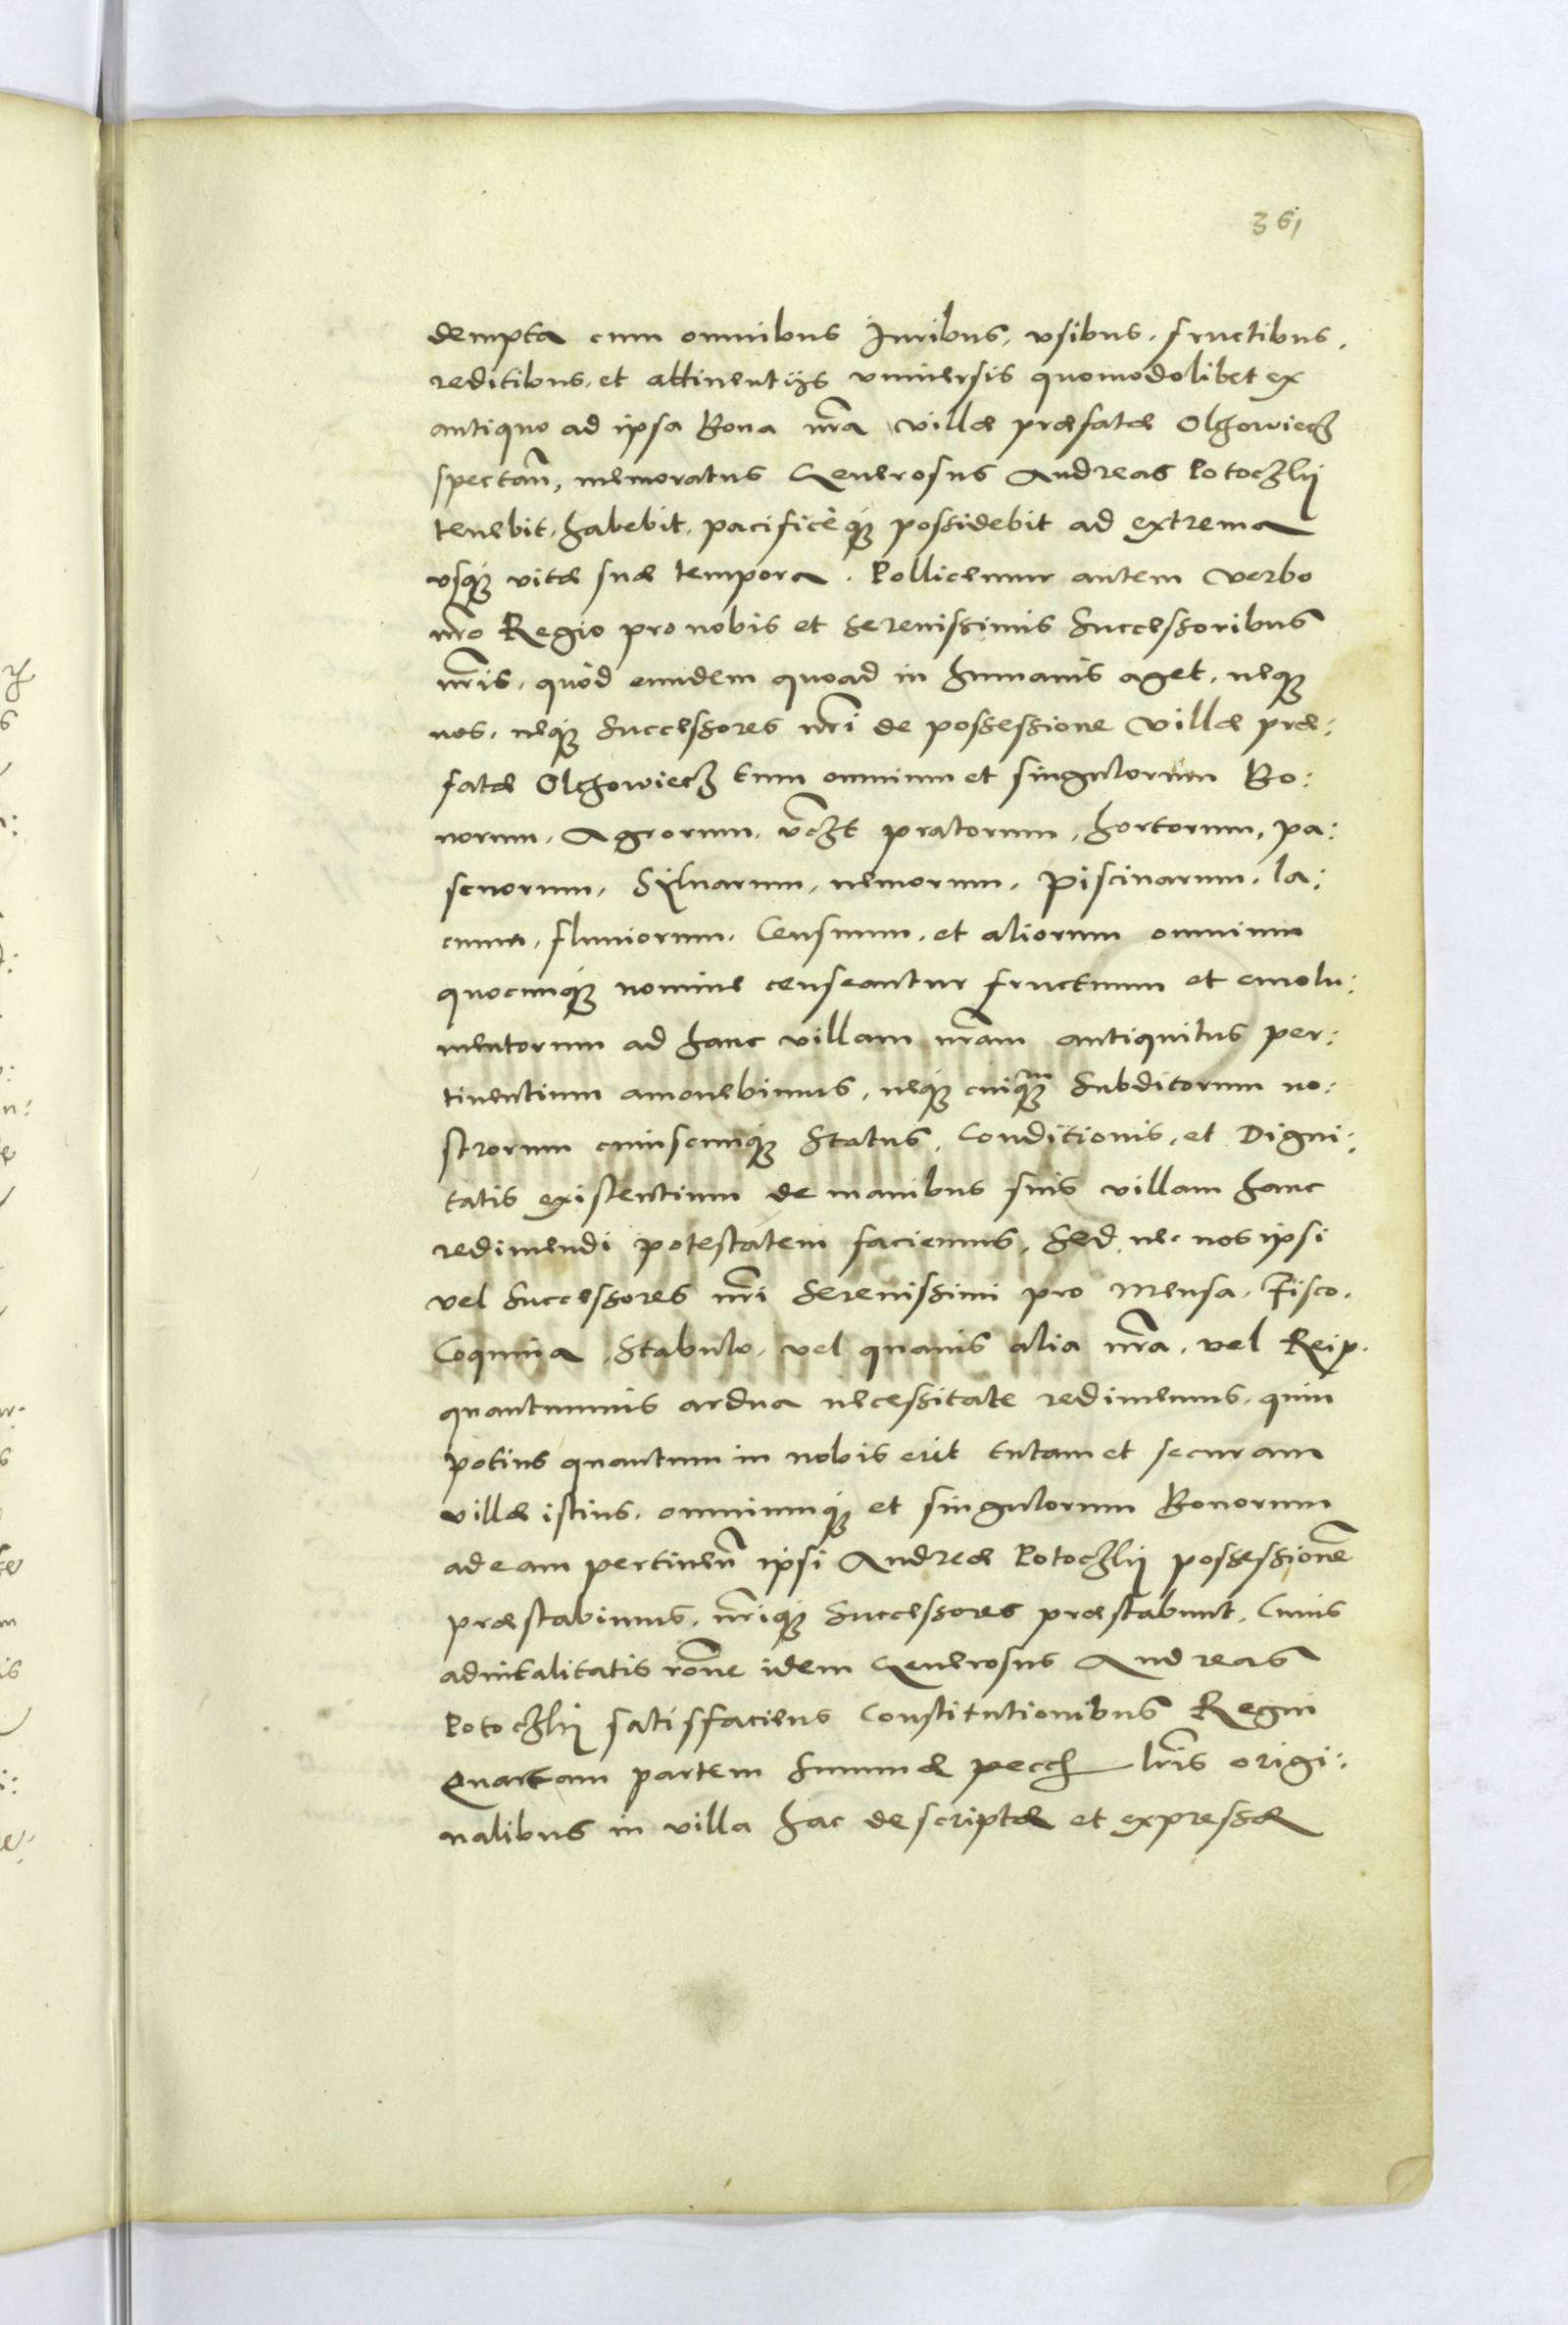 361
dempta cum omnibus Iuribus, vsibus, fructibus,
reditibus, et attinentijs vniuersis quomodolibet ex
antiquo ad ipsa Bona nr̃a villæ præfatæ Olchowiecz
spectañ, memoratus Generosus Andreas Potoczkij
tenebit, habebit, pacificéq; possidebit ad extrema
vsq; vitæ suæ tempora. Pollicemur autem verbo
nr̃o Regio pro nobis et serenissimis Successoribus
nr̃is, quòd eundem quoad in humanis aget, neq;
nos, neq; Successores nr̃i de possessione villæ præ:
fatæ Olchowiecz tum omnium et singulorum Bo:
norum, Agrorum, pratorum, hortorum, pa:
scuorum, Syluarum, nemorum, piscinarum, la:
cuum, fluuiorum, Censuum, et aliorum omnium
quocunq; nomine censeantur fructuum et emolu:
mentorum ad hanc villam nr̃am antiquitus per:
tinentium amouebimus, neq; cuiquam Subditorum no:
strorum cuiuscunq; Status, Conditionis, et Digni:
tatis existentium de manibus suis villam hanc
redimendi potestatem faciemus, Sed nec nos ipsi
vel Successores nr̃i Serenissimi pro Mensa, Fisco,
Coquina, Stabulo, vel quauis alia nr̃a, vel Reip.
quantumuis ardua necessitate redimemus, quin
potius quantum in nobis erit tutam et securam
villæ istius, omniumq; et singulorum Bonorum
ad eam pertineñ ipsi Andreæ Potoczkij possessionẽ
præstabimus, nr̃iq; Successores præstabunt, Cuius
aduitalitatis rõne idem Generosus Andreas
Potoczkij satisfaciens Constitutionibus Regni
Quartam partem Summæ lr̃is origi:
nalibus in villa hac descriptæ et expressæ